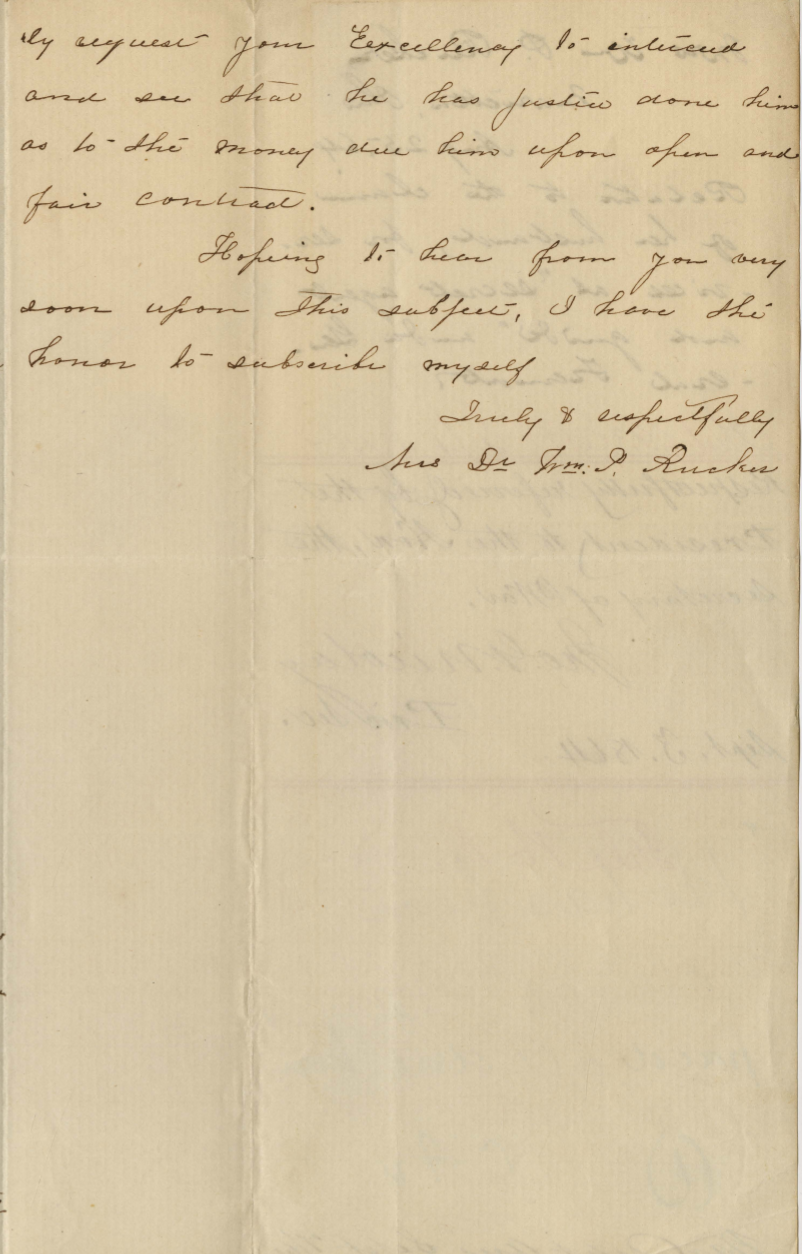 ly request your Excellency to interceed
and see that he has justice done him
as to the money due him upon open and
fair contract.
Hoping to hear from you very
soon upon this subject, I have the
honor to subscribe myself
Truly & respectfully
Mrs Dr Wm. P. Rucker